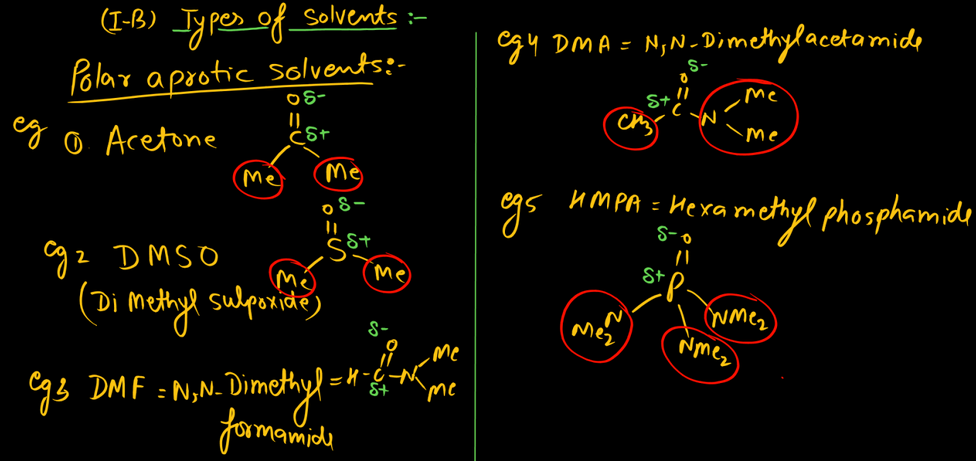 (I-B) Types of solvents :-
Polar aprotic solvents:-
eg ①. Acetone
O δ-
C δ+
Me Me
eg2 DMSO
(Di Methyl sulpoxide)
O δ-
S δ+
Me Me
eg3 DMF = N,N-Dimethyl = H-C-N
formamide
δ-
O
δ+
Me
Me
eg4 DMA = N,N-Dimethylacetamide
δ-
O
δ+ C
CH3 N Me
Me
eg5 HMPA = Hexamethyl phosphamide
δ- O
δ+ P
Me2N NMe2
NMe2